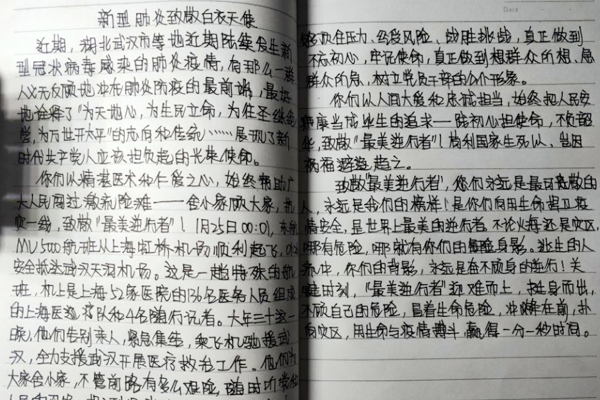 新型肺炎致敬白衣天使
近期,湖北武汉市等地近期陆续发生新
型冠状病毒感染的肺炎疫情,有那么一群
人义无反顾地冲在肺炎防疫的最前端,最好
地诠释了"为天地心,为生民立命,为往圣继绝
学,为万世开太平"的志向和传统……展现了新
时代共产党人应该担负起的光荣使命。
你们以精湛医术和仁爱之心,始终帮助广
大人民度过激新险难——舍小家顾大家,抗
灾一线,致敬"最美逆行者"!1月25日00:01,东航
MU5000航班从上海虹桥机场顺利起飞,
安全抵达武汉天河机场。这是一趟特殊的航
班,机上是上海52家医院的136名医务人员组成
的上海医疗队和4名随行记者。大年三十这一
晚,他们告别亲人,紧急集结,乘飞机驰援武
汉,全力支援武汉开展医疗救治工作。他们为
大家舍小家,不管前路有多么艰险,随时听党
够顶住压力、经受风险、战胜挑战,真正做到
不忘初心,牢记使命,真正做到想群众所想、急
群众所急,树立党员干部的个个形象。
你们以人间大爱和忠诚担当,始终把人民安
康当成毕生的追求——践初心担使命,不负韶
华,致敬"最美逆行者"!苟利国家生死以,岂因
祸福避趋之。
致敬"最美逆行者",你们永远是最可敬的
人,永远是我们的榜样!是你们用生命捍卫疫
情安全,是世界上最美的逆行者。不论火海还是灾区,
哪有危险,哪就有你们的身影。逃生的人
你们的背影,永远是奋不顾身的逆行!关
键时刻,"最美逆行者"迎难而上,挺身而出,
不顾自己的危险,冒着生命危险,冲锋在前,扑
向灾区,用生命与疫情搏斗,赢得一分一秒时间。